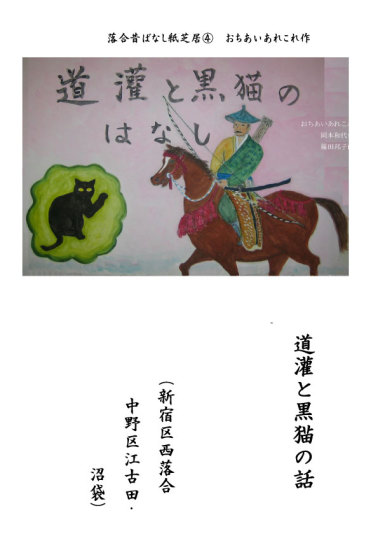 落合昔ばなし紙芝居④ おちあいあれこれ作
道灌と黒猫の
はなし
おちあいあれこれ
岡本和代
篠田邦子
道灌と黒猫の話
(新宿区西落合
中野区江古田・
沼袋)